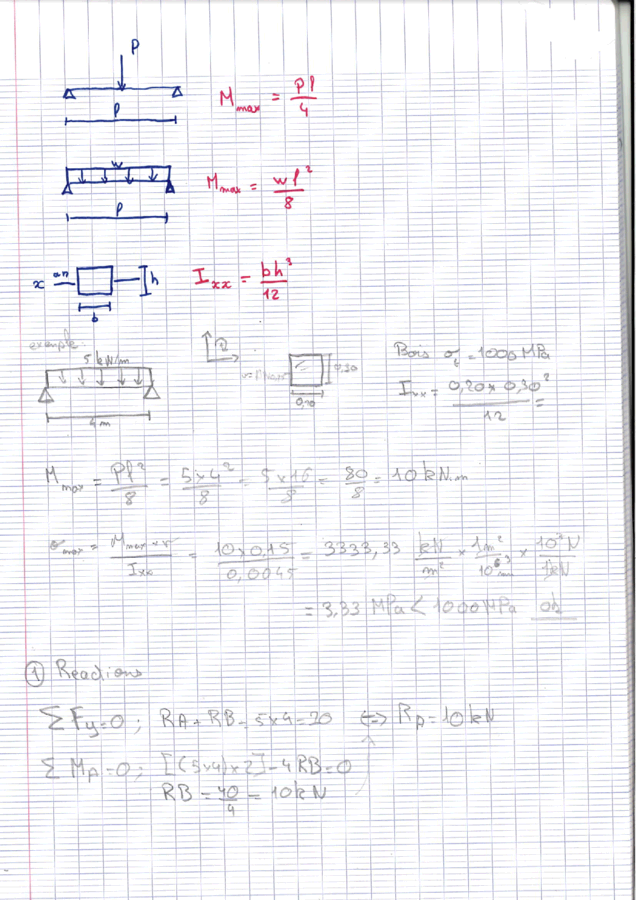 P
M max = Pl/4
l
w
M max = wl²/8
l
x h
b
I xx = bh³/12
exemple:
5 kN/m
4 m
0,30
0,20
Bois σ = 1000 MPa
I xx = 0,20 x 0,30²/12 =
M max = Pl²/8 = 5x4²/8 = 5x16/8 = 80/8 = 10 kN.m
σ max = M max x v/Ixx = 10x0,15/0,0045 = 3333,33 kN/m² x 1m²/10⁶ x N/1kN
= 3,33 MPa < 1000 MPa ok
① Reactions
ΣFy=0; RA + RB = 5x4 = 20 <=> RA = 10 kN
ΣMA=0; [(5x4)x2] - 4RB = 0
RB = 40/4 = 10 kN